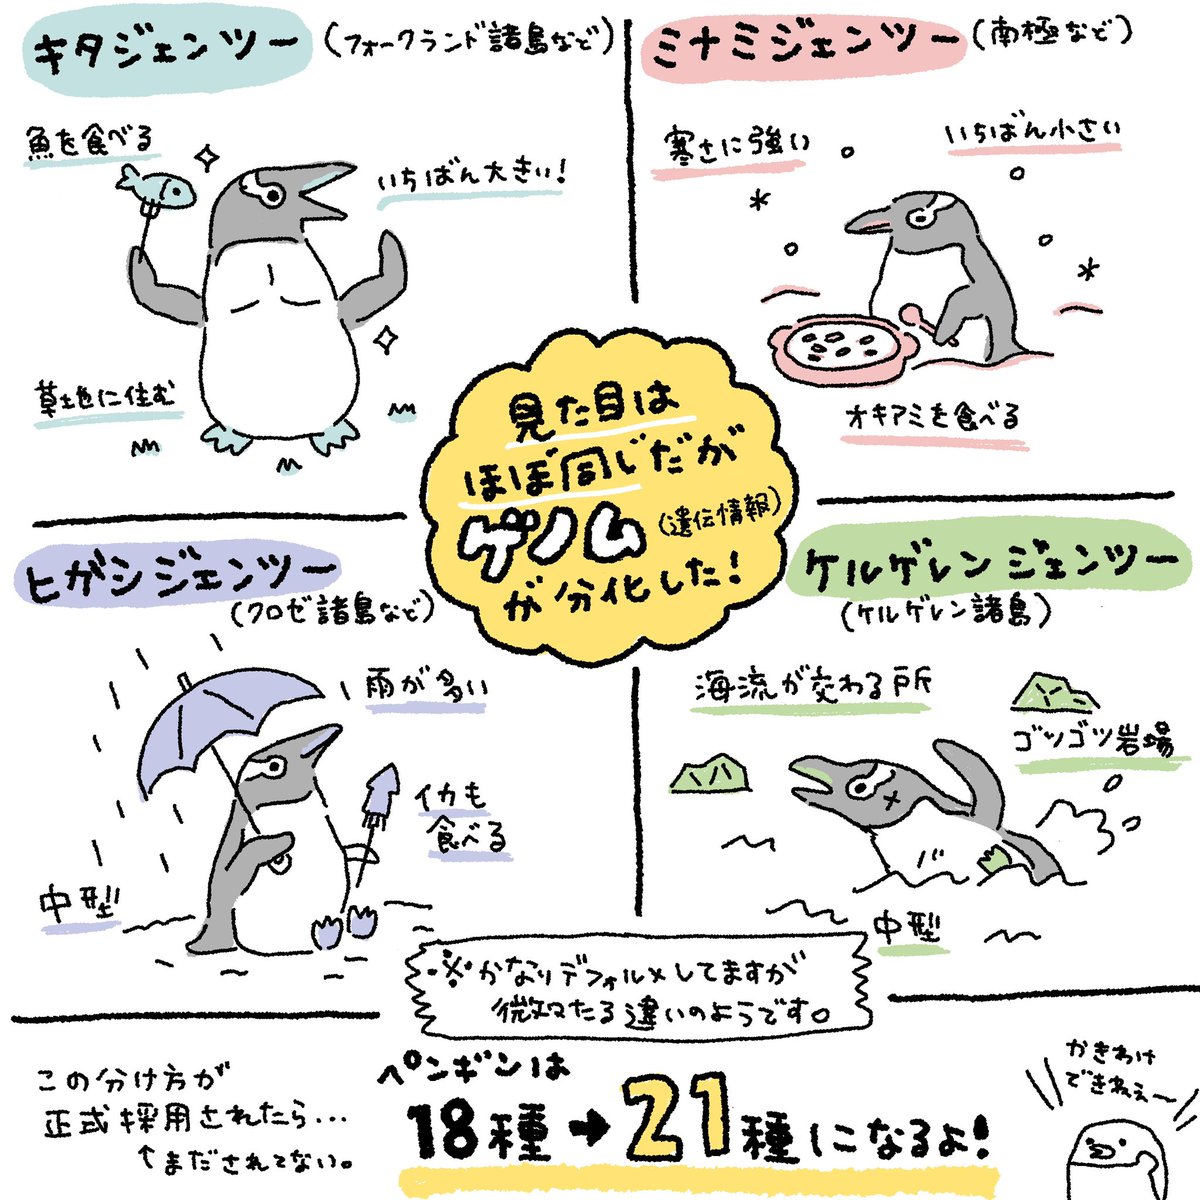 キタジェンツー
(フォークランド諸島など)
魚を食べる
いちばん大きい!
草地に住む
ミナミジェンツー
(南極など)
寒さに強い
いちばん小さい
オキアミを食べる
見た目は
ほぼ同じだが
ゲノム(遺伝情報)
が分化した!
ヒガシジェンツー
(クロゼ諸島など)
雨が多い
イカも
食べる
中型
ケルゲレンジェンツー
(ケルゲレン諸島)
海流が交わる所
ゴツゴツ岩場
中型
※かなりデフォルメしてますが
微々たる違いのようです。
この分け方が
正式採用されたら...
↑まだされてない。
ペンギンは
18種→21種になるよ!
かきわけ
できねぇ〜